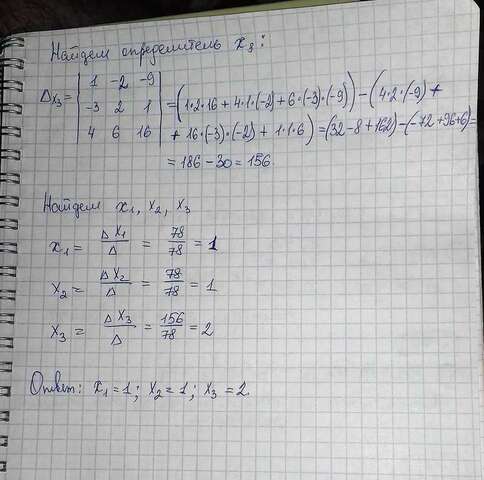 Найдем определитель x₃:
Δx₃ = | 1 -2 -9 |
| -3 2 1 | = (1·2·16 + 4·1·(-2) + 6·(-3)·(-9)) - (4·2·(-9) +
| 4 6 16 | + 16·(-3)·(-2) + 1·1·6) = (32 - 8 + 162) - (-72 + 96 + 6) =
= 186 - 30 = 156.
Найдем x₁, x₂, x₃
x₁ = Δx₁/Δ = 78/78 = 1
x₂ = Δx₂/Δ = 78/78 = 1
x₃ = Δx₃/Δ = 156/78 = 2
Ответ: x₁ = 1; x₂ = 1; x₃ = 2.